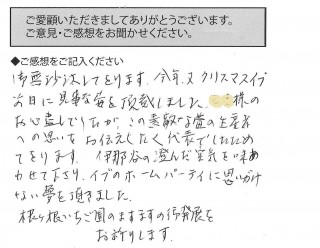 ご愛顧いただきましてありがとうございます。
ご意見・ご感想をお聞かせください。
◆ご感想をご記入ください
御無沙汰してをります。今年又クリスマスイブ
の日に見事な苺を頂戴しました。 様の
お心遣いでしたが、この素敵な苺の生産者
への思いをお伝えしたく代表でしたため
てをります。伊那谷の澄んだ空気を味あ
わせて下さり、イブのホームパーティに思いがけ
ない夢を頂きました。
根々根いちご園のますますの御発展を
お祈りします。